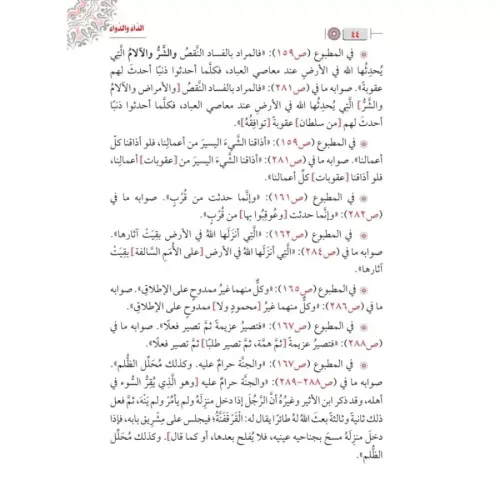 الداء والدواء
٤٤
في المطبوع (ص١٥٩): «فالمراد بالفساد النَّقصُ والشَّرُّ والآلامُ الَّتِي
يُحدِثُها الله في الأرضِ عند معاصي العباد، فكلَّما أحدثوا ذنبًا أحدثَ لهم
عقوبةً». صوابه ما في (ص٢٨١): «فالمراد بالفساد النَّقصُ [والأمراض والآلامُ
والشرُّ] الَّتي يُحدِثُها الله في الأرضِ عند معاصي العباد، فكلَّما أحدثوا ذنبًا
أحدثَ لهم [من سلطان] عقوبةً [توافِقُهُ]».
في المطبوع (ص١٥٩): «أذاقنا الشَّيءَ اليسيرَ من أعمالِنا، فلو أذاقنا كلّ
أعمالنا». صوابه ما في (ص٢٨١): «أذاقنا الشَّيءَ اليسير من [عقوبات] أعمالِنا،
فلو أذاقنا [عقوبات] كلّ أعمالنا».
في المطبوع (ص١٦١): «وإنَّما حدثت من قُرْبٍ». صوابه ما في
(ص٢٨٢): «وإنَّما حدثت [وعُوقِبُوا بها] من قُرْبٍ».
في المطبوع (ص١٦٢): «الَّتِي أنزَلَها اللهُ في الأرض بقِيَتْ آثارها».
صوابه ما في (ص٢٨٤): «الَّتِي أنزَلَها الله في الأرضِ [على الأُمَمِ السَّالفة] بقِيَتْ
آثارها».
في المطبوع (ص١٦٥): «وكلٌّ منهما غيرُ ممدوحٍ على الإطلاقِ». صوابه
ما في (ص٢٨٦): «وكلٌّ منهما غيرُ [محمودٍ ولا] ممدوحٍ على الإطلاقِ».
في المطبوع (ص١٦٧): «فتصيرُ عزيمةً ثمَّ تصير فعلًا». صوابه ما في
(ص٢٨٨): «فتصيرُ عزيمةً [ثمَّ همَّة، ثمَّ تصير طلبًا] ثمَّ تصير فعلًا».
في المطبوع (ص١٦٧): «والجنَّة حرامٌ عليه. وكذلك مُحَلِّل الظُّلم».
صوابه ما في (ص٢٨٨-٢٨٩): «والجنَّة حرام عليه [وهو الَّذي يُقِرُّ السُّوء في
أهله، وقد ذكر ابن الأثير وغيرُهُ أنَّ الرَّجُلَ إذا دخلَ منزِلَهُ ولم يأمُرْ ولم يَنْهَ، ثمَّ فعل
ذلك ثانيةً وثالثةً بعثَ اللهُ لهُ طائرًا يقال له: القَرْقَفَنَّةُ؛ فيجلس على مِشْرِيقِ بابه، فإذا
دخلَ منزِلَهُ مسحَ بجناحيه عينيه، فلا يُفلِح بعدها، أو كما قال]. وكذلك مُحَلِّل
الظُّلم».